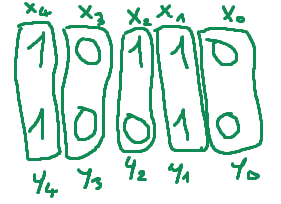 x₄ x₃ x₂ x₁ x₀
1 0 1 1 0
1 0 0 1 0
y₄ y₃ y₂ y₁ y₀